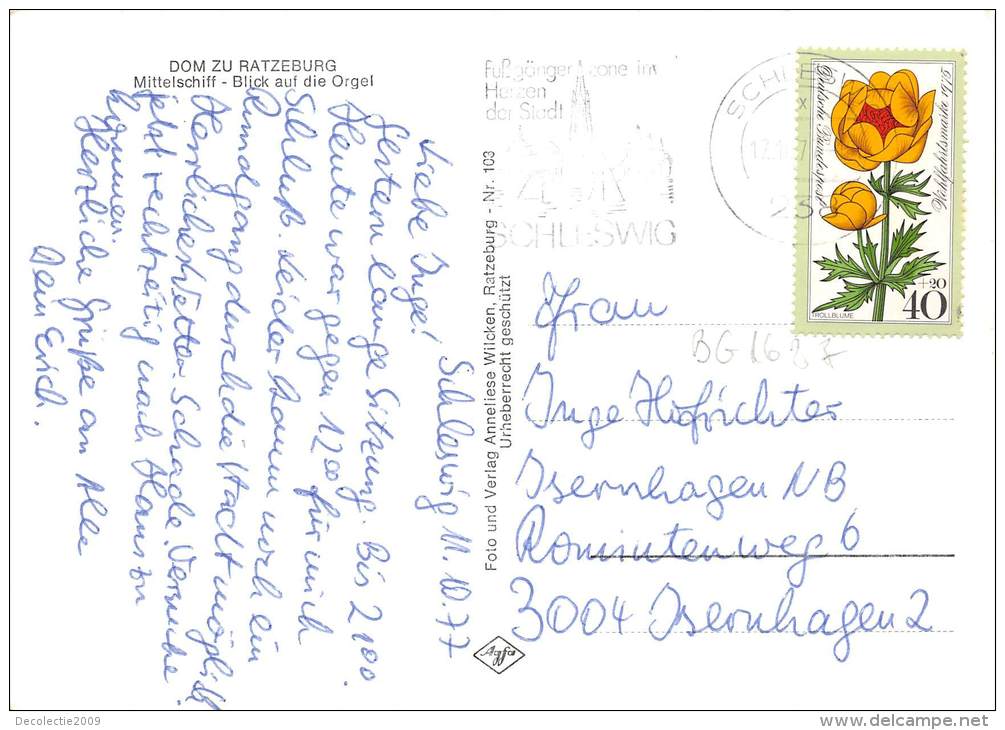 DOM ZU RATZEBURG
Mittelschiff - Blick auf die Orgel
Schleswig 11.10.77
Liebe Inge!
Gestern lange Sitzung. Bis 2100.
Heute war gegen 1200 für mich
Schluß. Leider kaum noch ein
Rundgang durch die Stadt möglich
Herrlichest Wetter. Schade. Versuche
jetzt rechtzeitig nach Haus zu
kommen.
Herzliche Grüße an Alle
Dein Erich.
Foto und Verlag Anneliese Wilcken, Ratzeburg - Nr. 103
Urheberrecht geschützt
Agfa
Fußgängerzone im
Herzen
der Stadt
SCHLESWIG
SCHLESWIG
Deutsche Bundespost
Wohlfahrtsmarke 1975
TROLLBLUME
40
+20
BG1687
Frau
Inge Hofrichter
Isernhagen NB
Romintenweg 6
3004 Isernhagen 2
Decolectie2009
delcampe.net